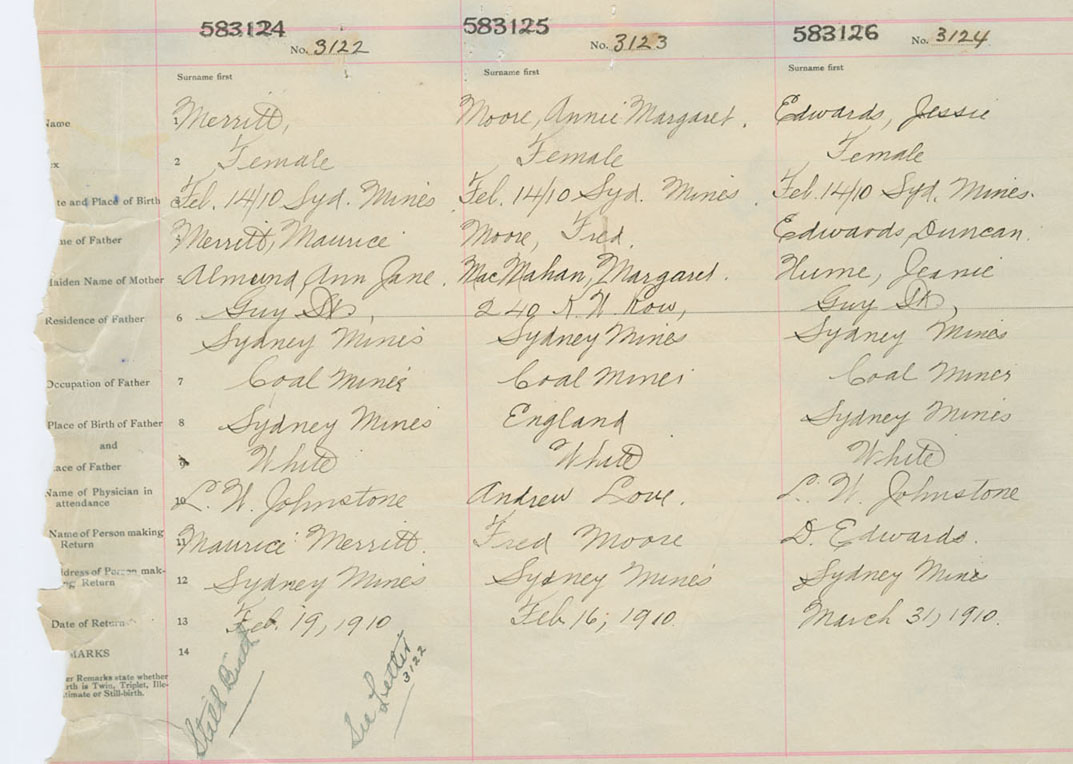 583124 No. 3122 583125 No. 3123 583126 No. 3124
Surname first Surname first Surname first
Name 1 Merritt, Moore, Annie Margaret. Edwards, Jessie
ex 2 Female Female Female
te and Place of Birth 3 Feb. 14/10 Syd. Mines Feb. 14/10 Syd. Mines Feb. 14/10 Syd. Mines.
me of Father Merritt, Maurice Moore, Fred. Edwards, Duncan.
Maiden Name of Mother 5 Almond, Ann Jane. MacMahan, Margaret. Hume, Jeanie
Residence of Father 6 Guy St, 240 Row, Guy St,
Sydney Mines Sydney Mines Sydney Mines
Occupation of Father 7 Coal Miner Coal Miner Coal Miner
Place of Birth of Father 8 Sydney Mines England Sydney Mines
and
ace of Father 9 White White White
Name of Physician in
attendance 10 L. W. Johnstone Andrew Love. L. W. Johnstone
Name of Person making
Return 11 Maurice Merritt. Fred Moore D. Edwards.
ddress of Person mak-
ing Return 12 Sydney Mines Sydney Mines Sydney Mines
Date of Return 13 Feb. 19, 1910 Feb 16, 1910 March 31, 1910.
MARKS 14
er Remarks state whether
rth is Twin, Triplet, Ille-
timate or Still-birth.
Still Birth
See Letter
3122